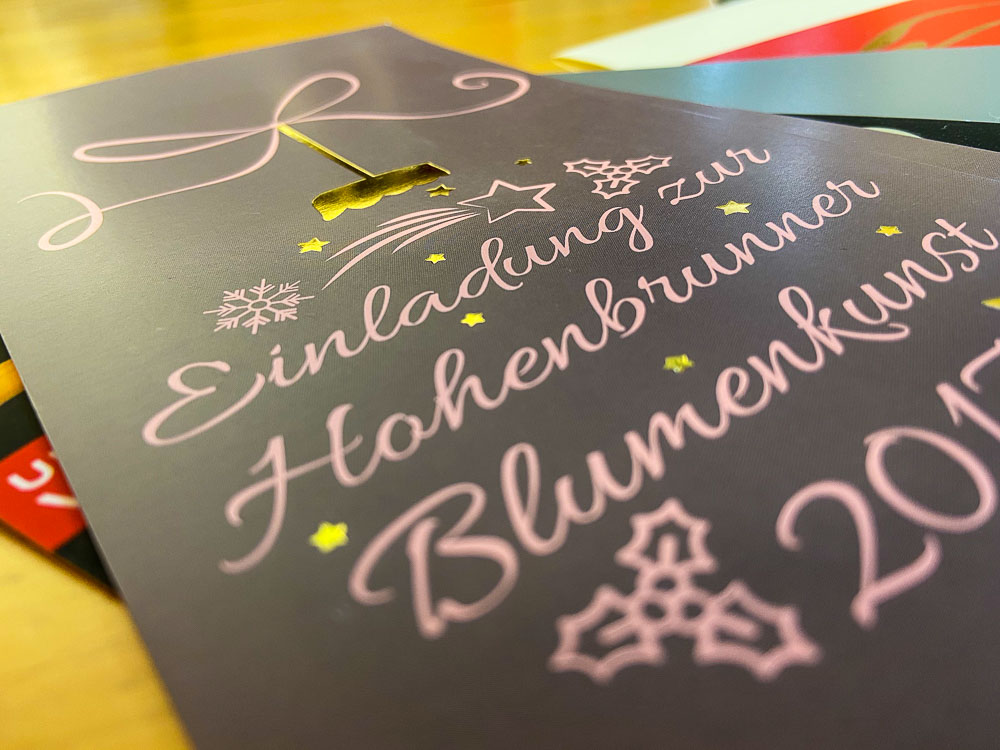 Einladung zur
Hohenbrunner
Blumenkunst
2017